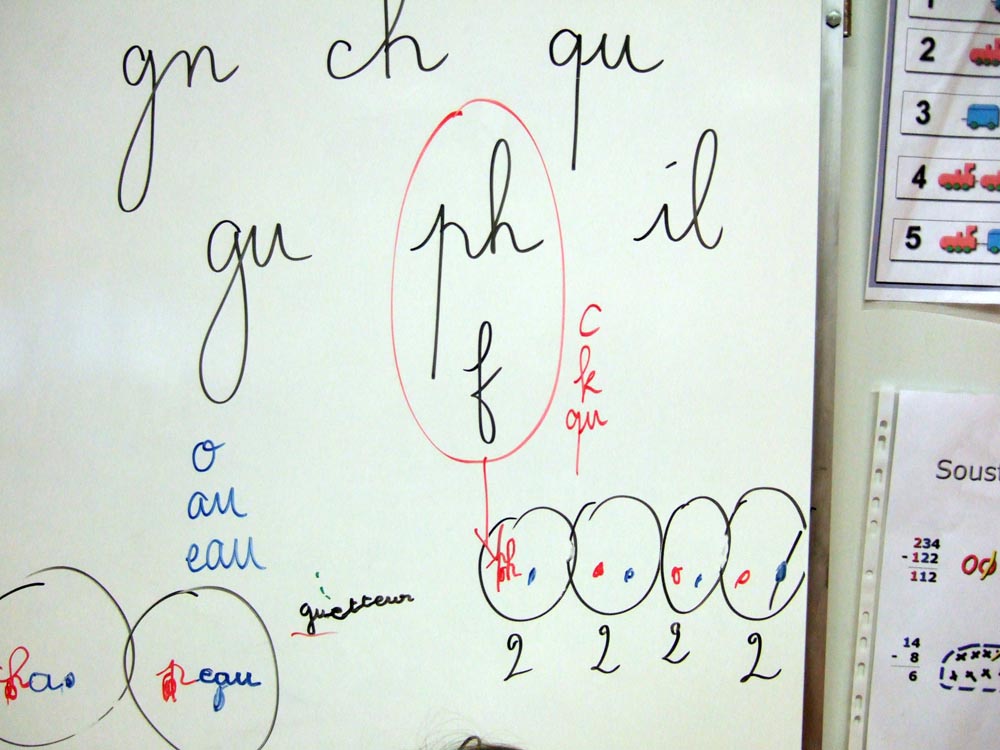 gn ch qu
gu ph il
f
c
k
qu
o
au
eau
ph
guetteur
peau
2 2 2 2
1
2
3
4
5
Soust
234
-122
112
14
- 8
6